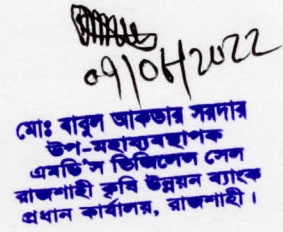 ০৭/০৮/২০২২
মোঃ বাবুল আকতার সরদার
উপ-মহাব্যবস্থাপক
এমডি'স ভিজিলেন্স সেল
রাজশাহী কৃষি উন্নয়ন ব্যাংক
প্রধান কার্যালয়, রাজশাহী।